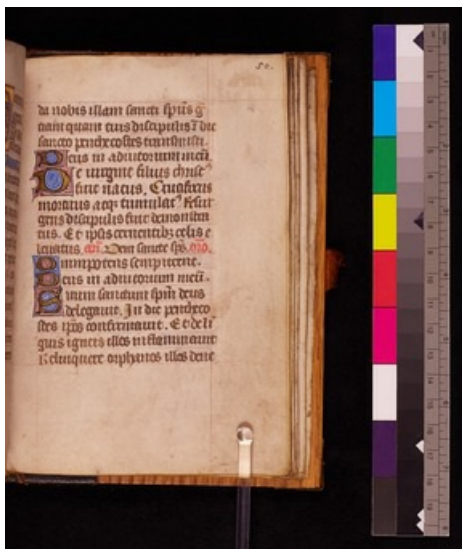 50.
da nobis illam sancti sp̄us ḡ
ciam quam tuis discipulis ī die
sancto penthecostes transmisisti.
Deus in adiutorium meū.
De virgine filius christ᷒
fuit natus, Crucifixus
mortuus atq; tumulat᷒ Resur
gens discipulis fuit demonstra
tus. Et ipsis cernentibz celis e
levatus. Veni sancte sp̄s. oro.
Omnipotens sempiterne.
Deus in adiutorium meū.
sanctum sp̄m deus
delegavit, In die pentheco
stes ap̄os confirmavit. Et de li
guis igneis illos inflammavit
Relinquere orphanos illos